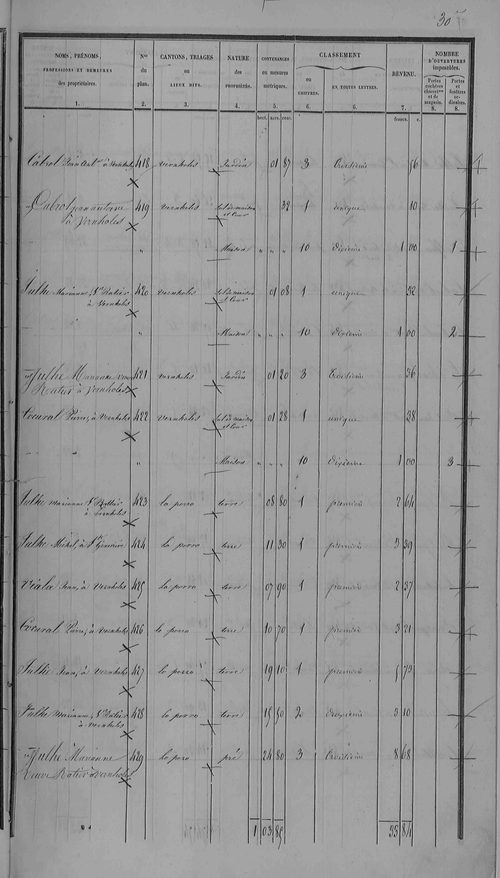 30
NOMS, PRÉNOMS, PROFESSIONS ET DEMEURES des propriétaires. | Nos du plan. | CANTONS, TRIAGES ou LIEUX DITS. | NATURE des | CONTENANCES ou mesures métriques. | CLASSEMENT | REVENU. | NOMBRE D'OUVERTURES imposables.
ou CHIFFRES. | EN TOUTES LETTRES. | Portes cochères et de magasin. | Portes et fenêtres ordinaires.
1. | 2. | 3. | 4. | 5. | 6. | 6. | 7. | 8. | 8.
hect. ares. cent. | francs. c.
Cabrol à Vernholes | 418 | Vernholes | Jardin | 01 87 | 3 | Troisième | 56
Cabrol jean antoine à Vernholes | 419 | Vernholes | Sol de maison et Cour | 32 | 1 | unique | 10
" | Maison | " " " | 10 | dixième | 1 00 | 1
Julhe Marianne, Ve Ratier à Vernholes | 420 | Vernholes | Sol de maison et Cour | 01 08 | 1 | unique | 32
" | Maison | " " " | 10 | dixième | 1 00 | 2
Julhe Marianne veuve Ratier à Vernholes | 421 | Vernholes | Jardin | 01 20 | 3 | Troisième | 36
Cocural Pierre, à Vernholes | 422 | Vernholes | Sol de maison et Cour | 01 28 | 1 | unique | 38
" | Maison | " " " | 10 | dixième | 1 00 | 3
Julhe marianne Ve Ratier à Vernholes | 423 | la parro | terre | 08 80 | 1 | première | 2 64
Julhe Michel, à | 424 | la parro | terre | 11 30 | 1 | première | 3 39
Vialar Jean, à Vernholes | 425 | la parro | terre | 07 90 | 1 | première | 2 37
Cocural Pierre, à Vernholes | 426 | la parro | terre | 10 70 | 1 | première | 3 21
Julhe Jean, à Vernholes | 427 | la parro | terre | 19 10 | 1 | première | 5 73
Julhe marianne, Ve Ratier à Vernholes | 428 | la parro | terre | 15 50 | 2 | deuxième | 3 10
Julhe Marianne Veuve Ratier à Vernholes | 429 | la parro | pré | 24 80 | 3 | troisième | 8 68
1 03 85 | 33 84